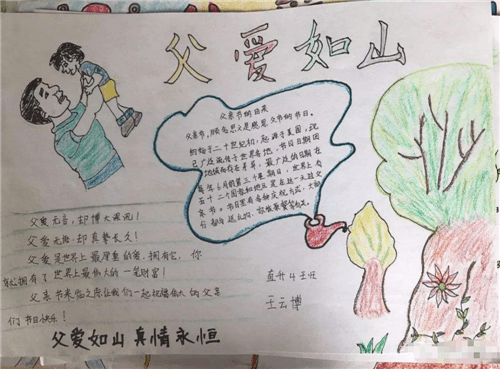 父爱如山
父亲节的由来
父亲节,顾名思义是感恩父亲的节日。
约始于二十世纪初,起源于美国,现
已广泛流传于世界各地,节日日期因
地域而存在差异。最广泛的日期在
每年6月的第三个星期日,世界上有
五十二个国家和地区是在这一天过父
亲节。节日里有各种庆祝方式,大部
分都与送礼物、
父爱无言,却博大深沉!
父爱无价却真挚长久!
父爱是世界上最厚重的爱,拥有它,你
就拥有了世界上最伟大的一笔财富!
父亲节来临之际让我们一起祝福伟大的父亲
们节日快乐!
父爱如山真情永恒
直升4王班
王云博